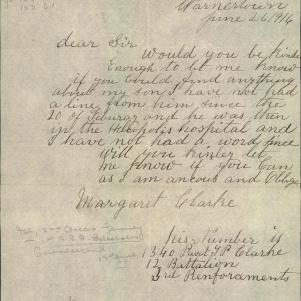 Warnertown
June 26 1916
dear Sir
Would you be kinde
Enough to let me know
if you could find anything
about my son I have not had
a line from him since the
20 of Feburay and he was then
in the Heliopolis hospital and
I have not had a word since
Will you kinley let
me know if you can
as I am ancous and Oblige
Margaret Clarke
his Number is
1340 Privt J P Clarke
12 Battalion
3rd Renforcements